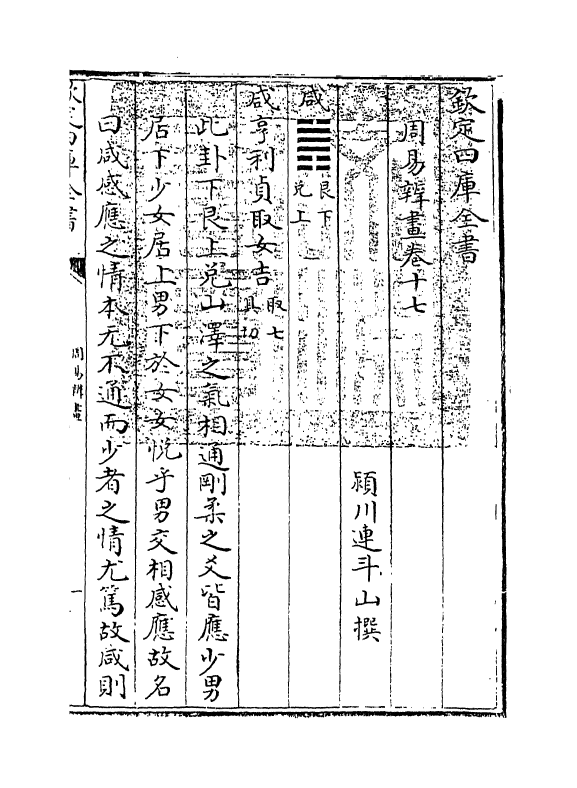 欽定四庫全書
周易辨畫卷十七
潁川連斗山撰
咸䷞艮下
兌上
咸亨利貞取女吉取七
具
此卦下艮上兌山澤之氣相通剛柔之爻皆應少男
居下少女居上男下於女女悅乎男交相感應故名
曰咸感應之情本无不通而少者之情尤篤故咸則
欽定四庫全書
周易辨畫
一